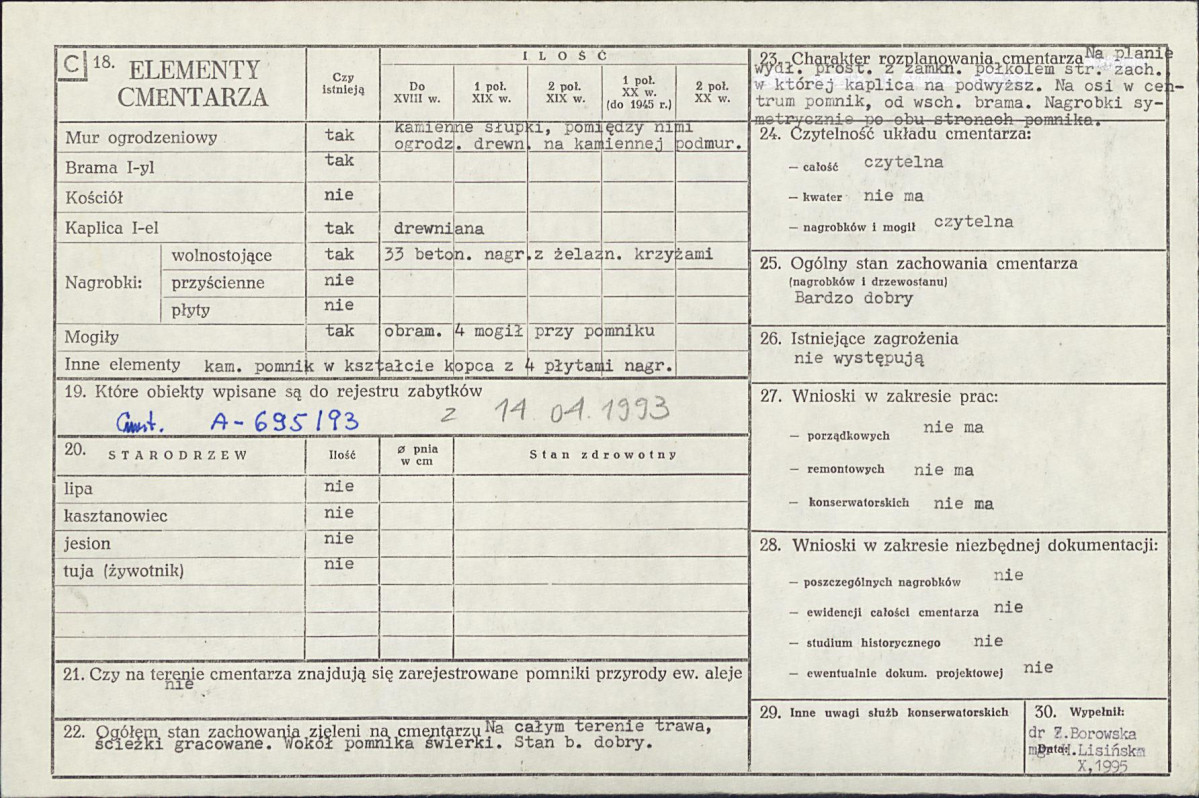 C 18. ELEMENTY
CMENTARZA
Czy
istnieją
I L O Ś Ć
Do
XVIII w.
1 poł.
XIX w.
2 poł.
XIX w.
1 poł.
XX w.
(do 1945 r.)
2 poł.
XX w.
Mur ogrodzeniowy tak kamienne słupki, pomiędzy nimi
ogrodz. drewn. na kamiennej podmur.
Brama I-yl tak
Kościół nie
Kaplica I-el tak drewniana
Nagrobki:
wolnostojące tak 33 beton. nagr.z żelazn. krzyżami
przyścienne nie
płyty nie
Mogiły tak obram. 4 mogił przy pomniku
Inne elementy kam. pomnik w kształcie kopca z 4 płytami nagr.
19. Które obiekty wpisane są do rejestru zabytków
Cmt. A-695/93 z 14.04.1993
20. STARODRZEW Ilość ø pnia
w cm Stan zdrowotny
lipa nie
kasztanowiec nie
jesion nie
tuja (żywotnik) nie
21. Czy na terenie cmentarza znajdują się zarejestrowane pomniki przyrody ew. aleje
nie
22. Ogółem stan zachowania zieleni na cmentarzu Na całym terenie trawa,
ścieżki gracowane. Wokół pomnika świerki. Stan b. dobry.
23. Charakter rozplanowania cmentarza Na planie
wydł. prost. z zamkn. półkolem str. zach.
w której kaplica na podwyższ. Na osi w cen-
trum pomnik, od wsch. brama. Nagrobki sy-
metrycznie po obu stronach pomnika.
24. Czytelność układu cmentarza:
— całość czytelna
— kwater nie ma
— nagrobków i mogił czytelna
25. Ogólny stan zachowania cmentarza
(nagrobków i drzewostanu)
Bardzo dobry
26. Istniejące zagrożenia
nie występują
27. Wnioski w zakresie prac:
— porządkowych nie ma
— remontowych nie ma
— konserwatorskich nie ma
28. Wnioski w zakresie niezbędnej dokumentacji:
— poszczególnych nagrobków nie
— ewidencji całości cmentarza nie
— studium historycznego nie
— ewentualnie dokum. projektowej nie
29. Inne uwagi służb konserwatorskich
30. Wypełnił:
dr Z.Borowska
mgr H.Lisińska
Data:
X,1995